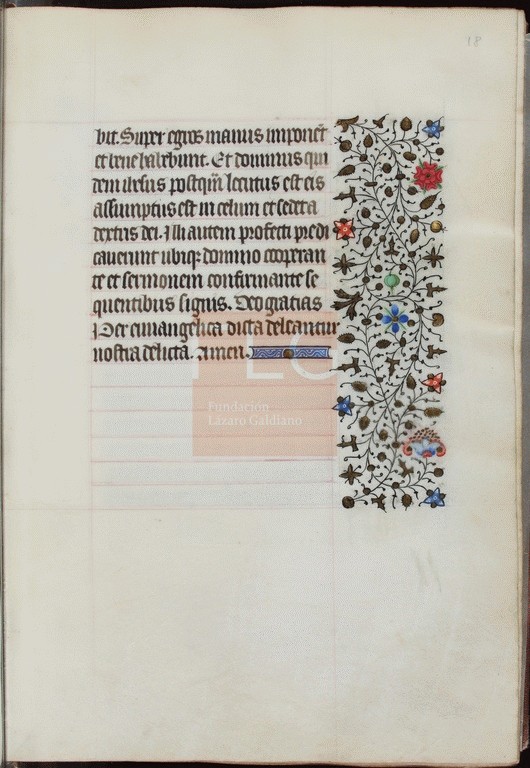 18
bit. Super egros manus imponēt
et bene habebunt. Et dominus qui
dem ihesus postqm̄ locutus est eis
assumptus est in celum et sedet a
dextris dei. Illi autem profecti predi
cauerunt ubiqꝫ domino cooperan
te et sermonem confirmante se
quentibus signis. Deo gratias
Per euuangelica dicta deleantur
nostra delicta. Amen.
Fundación
Lázaro Galdiano